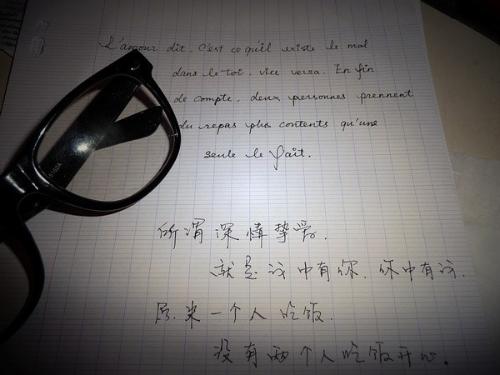 L'amour dit. C'est ce qu'il existe le mal
dans le toi, vice versa. En fin
de compte, deux personnes prennent
du repas plus contents qu'une
seule le fait.
所谓深情挚爱,
就是我中有你,你中有我.
原来一个人吃饭,
没有两个人吃饭开心.